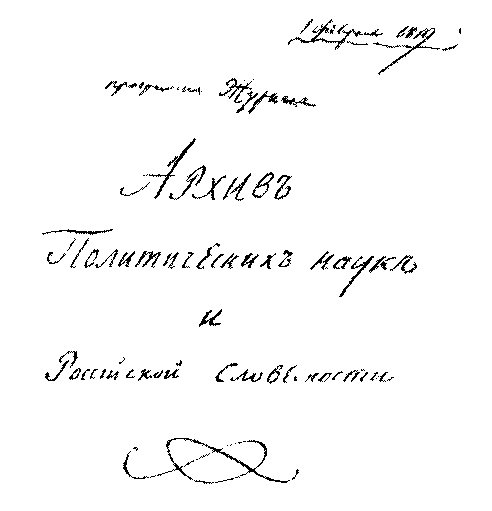 1 Февраля 1819
программа Журнала
Архивъ
Политическихъ наукъ
и
Россiйской Словесности